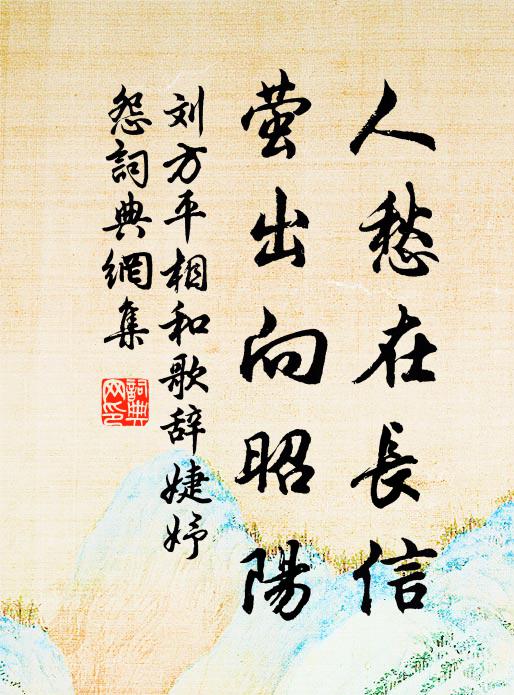 人愁在長信
萤出向昭陽
刘方平相和歌辞婕妤
怨詞典網集
詞典网印